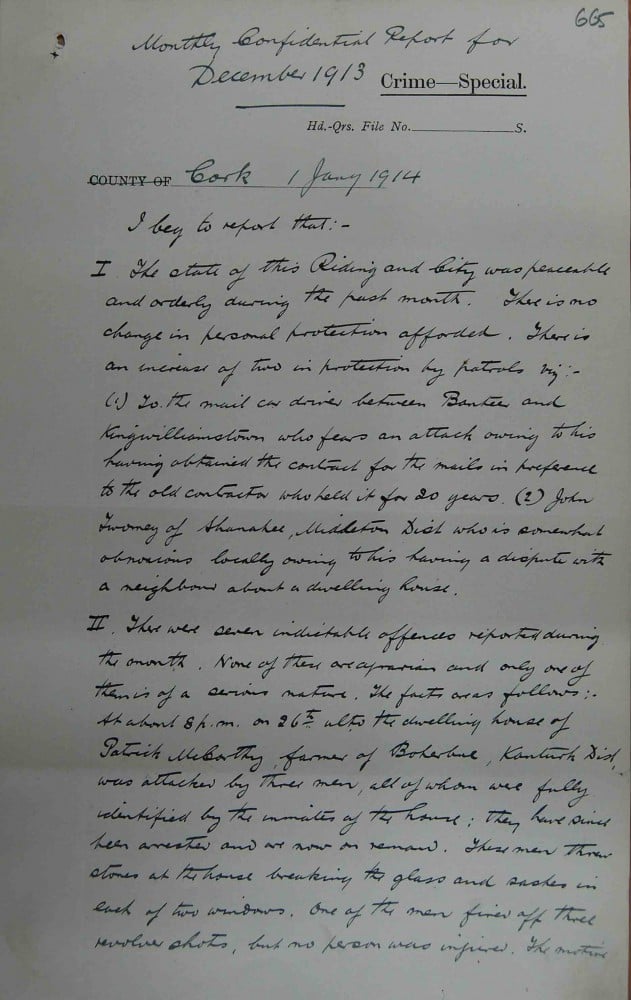 665
Monthly Confidential Report for
December 1913 Crime—Special.
Hd.-Qrs. File No. S.
COUNTY OF Cork 1 Jany 1914
I beg to report that:-
I The state of this Riding and City was peaceable
and orderly during the past month. There is no
change in personal protection afforded. There is
an increase of two in protection by patrols viz:-
(1) To the mail car driver between Banteer and
Kingwilliamstown who fears an attack owing to his
having obtained the contract for the mails in preference
to the old contractor who held it for 20 years. (2) John
Twomey of Shanakee, Middleton Dist who is somewhat
obnoxious locally owing to his having a dispute with
a neighbour about a dwelling house.
II. There were seven indictable offences reported during
the month. None of these are agrarian and only one of
them is of a serious nature. The facts are as follows:-
At about 8 p.m. on 26th ulto the dwelling house of
Patrick McCarthy, farmer of Boherbue, Kanturk Dist,
was attacked by three men, all of whom were fully
identified by the inmates of the house; they have since
been arrested and are now on remand. These men threw
stones at the house breaking the glass and sashes in
each of two windows. One of the men fired off three
revolver shots, but no person was injured. The motive